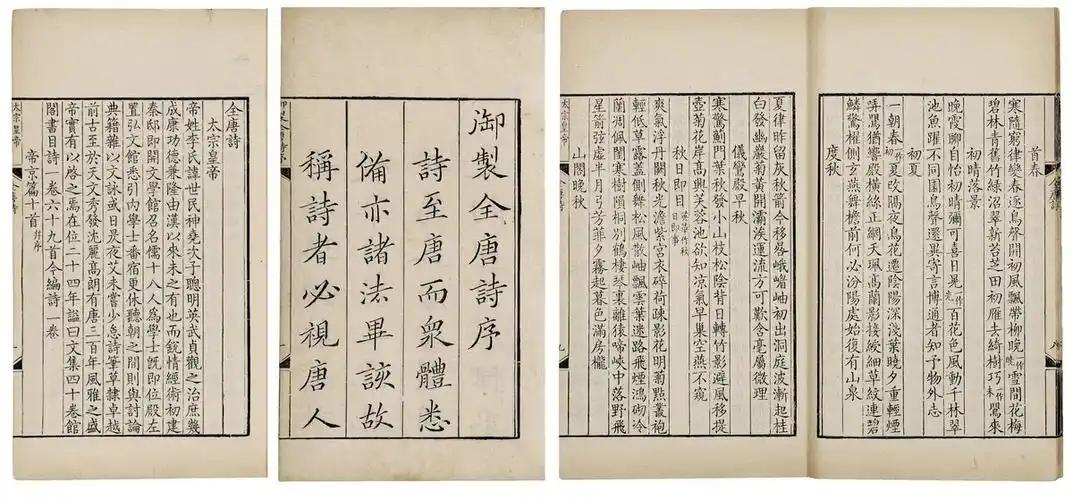 全唐詩
太宗皇帝
帝姓李氏諱世民神堯次子聰明英武貞觀之治庶幾
成康功德兼隆由漢以來未之有也而銳情經術初建
秦邸即開文學館召名儒十八人為學士既即位殿左
置弘文館悉引內學士番宿更休聽朝之間則與討論
典籍雜以文詠或日昃夜艾未嘗少怠詩筆草隸卓越
前古至於天文秀發沈麗高朗有唐三百年風雅之盛
帝實有以啓之焉在位二十四年諡曰文集四十卷館
閣書目詩一卷六十九首今編詩一卷
帝京篇十首并序
太宗皇帝
御製全唐詩序
詩至唐而眾體悉
備亦諸法畢該故
稱詩者必視唐人
首春
寒隨窮律變春逐鳥聲開初風飄帶柳晚一作曉雪間花梅
碧林青舊竹綠沼翠新苔芝田初雁去綺樹巧一作未鸎來
初晴落景
晚霞聊自怡初晴彌可喜日晃一作光百花色風動千林翠
池魚躍不同園鳥聲還異寄言博通者知予物外志
初夏
一朝春一作初夏改隔夜鳥花遷陰陽深淺葉曉夕重輕煙
哢鸎猶響殿橫絲正網天珮高蘭影接綬細草紋連碧
鱗驚棹側玄燕舞檐前何必汾陽處始復有山泉
度秋
夏律昨留灰秋箭今移晷峨嵋岫初出洞庭波漸起桂
白發幽巖菊黃開灞涘運流方可歎含毫屬微理
儀鸞殿早秋
寒驚薊門葉秋發小山枝松陰背日轉竹影避風移提
壺菊花岸高興芙蓉池欲知涼氣早巢空燕不窺
秋日即目
爽氣浮丹闕秋光澹紫宮衣碎荷疎影花明菊點叢袍
輕低草露蓋側舞松風散岫飄雲葉迷路飛煙鴻砌冷
蘭凋佩閨寒樹隕桐別鶴棲琴裏離猿啼峽中落野飛
星箭弦虛半月弓芳菲夕霧起暮色滿房櫳
山閣晚秋
太宗皇帝